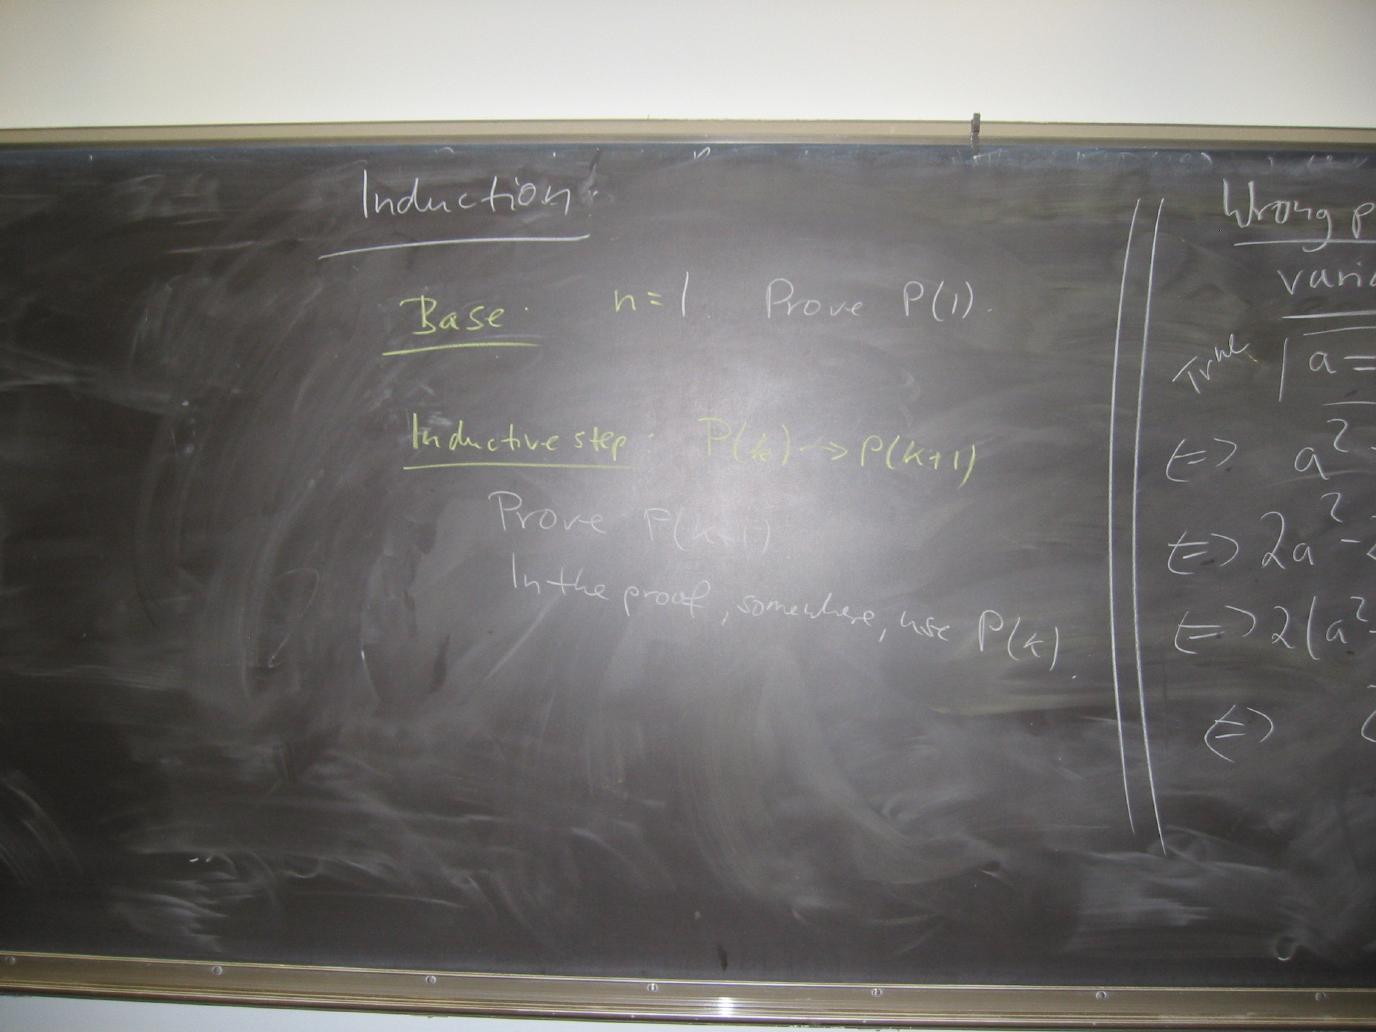 Induction.
Base. n=1. Prove P(1).
Inductive step: P(k) → P(k+1)
Prove P(k+1)
In the proof, somewhere, use P(k).
Wrong p
varia
True | a =
⇔ a²
⇔ 2a² -
⇔ 2(a²
⇔